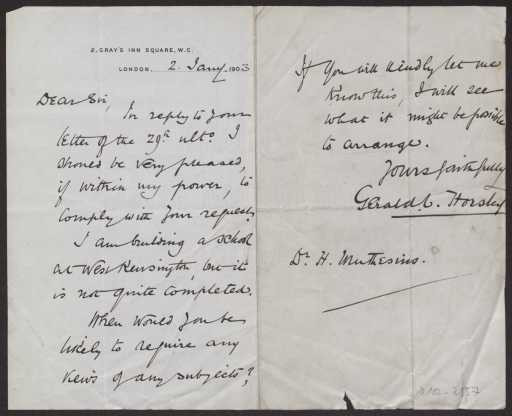 2, GRAY'S INN SQUARE, W.C.
LONDON, 2. Jany. 1903
Dear Sir,
In reply to your
letter of the 29th ulto. I
should be very pleased,
if within my power, to
comply with your request.
I am building a school
at West Kensington, but it
is not quite completed.
When would you be
likely to require any
views of any subjects?
If you will kindly let me
know this, I will see
what it might be possible
to arrange.
Yours faithfully
Gerald C. Horsley
Dr. H. Muthesius.